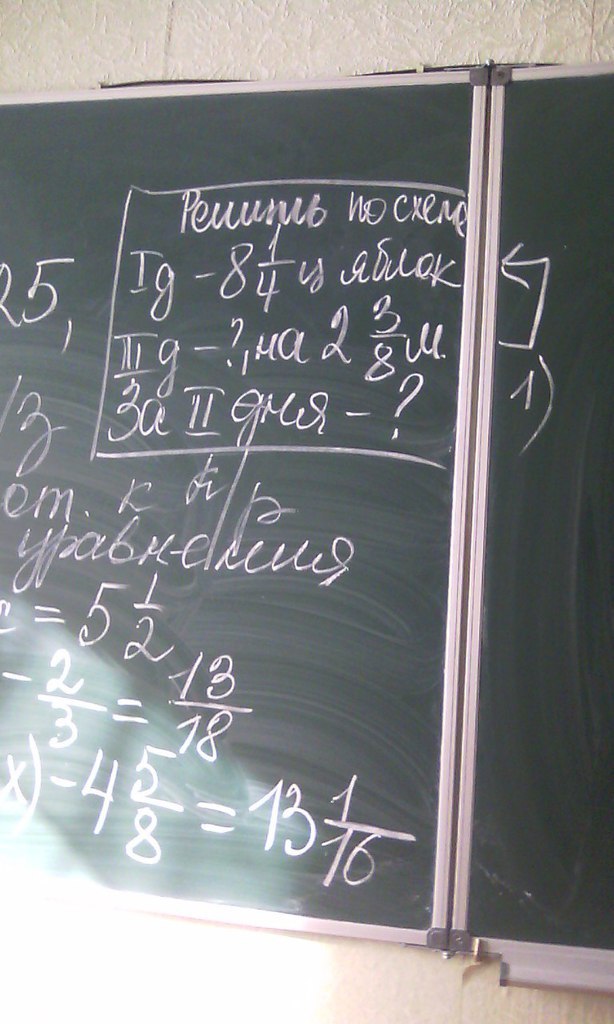 Решить по схеме
25,
I д - 8 1/4 ц яблок
II д - ?, на 2 3/8 м.
За II дня - ?
1)
от. к к/р
уравнения
= 5 1/2
- 2/3 = 13/18
х) - 4 5/8 = 13 1/16